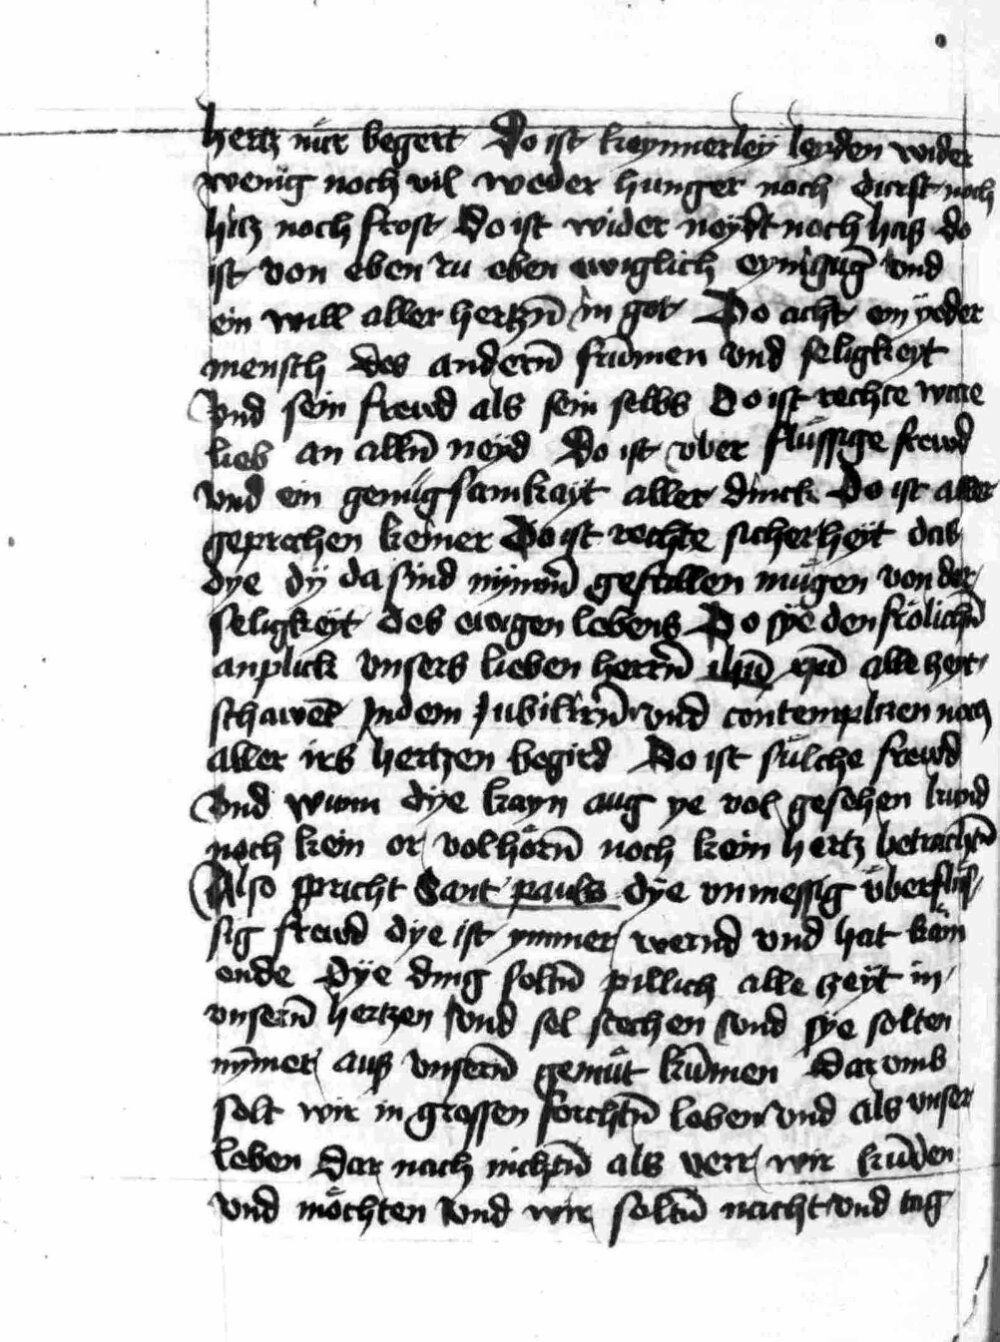 hertz nür begert Do ist keynnerley leyden wider
wenig noch vil weder hunger noch durst noch
hitz noch frost Do ist wider neydt noch haß do
ist von eben zu eben ewiglich eyniguḡ vnd
ein will aller hertzn̄ in got Do acht ein yeder
mensch des andern̄ frūmen vnd seligkeyt
vnd sein frewd als sein selbs Do ist rechte ware
lieb an alln̄ neyd Do ist vber flüssige frewd
vnd ein genügsamkayt aller dinck Do ist aller
geprechen keiner Do ist rechte sicherheyt das
dye dy da sind nymm̄ gefallen mügen von der
seligkeyt des ewigen lebens Do sye den frölichn̄
anplick vnsers lieben herrn̄ ihū xp̄i alle zeyt
schawēt In dem Jubilirn̄ vnd contempliren noch
aller irs hertzen begird Do ist sülche frewd
vnd wunn dye kayn aug ye vol gesehen kund
noch kein or vol hörn̄ noch kein hertz betrachtn̄
Also spricht Sant pauls dye vnmessig überflüs
sig frewd dye ist ymmer wernd vnd hat kein
ende Dye ding soltn̄ pillich alle zeyt in
vnsern̄ hertzen sind sol stechen vnd sye solten
nȳmer auß vnsern̄ gemüt kūmen Dar vmb
solt wir in grossen forchtn̄ leben vnd als vnser
leben dar nach richtn̄ als verr wir kūnden
vnd möchten vnd wir soltn̄ nacht vnd tag